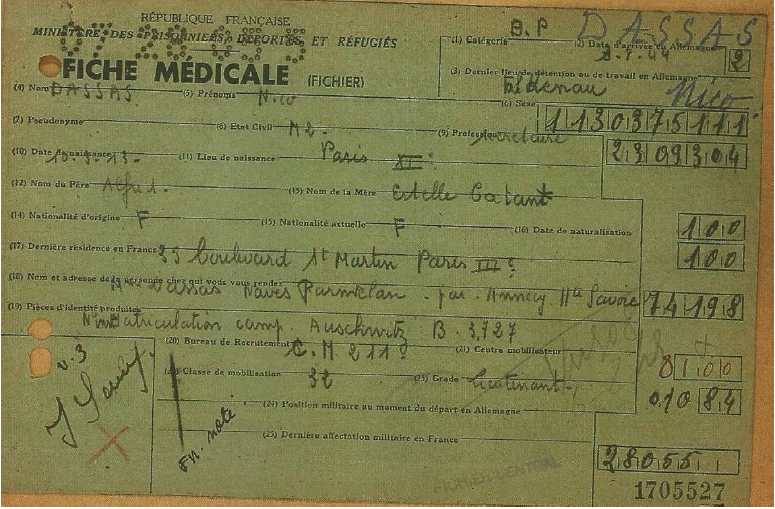 RÉPUBLIQUE FRANÇAISE
MINISTÈRE DES PRISONNIERS, DÉPORTÉS ET RÉFUGIÉS
FICHE MÉDICALE (FICHIER)
(1) Catégorie B.P (2) Date d'arrivée en Allemagne
DASSAS
2
(3) Dernier lieu de détention ou de travail en Allemagne
Nico
(4) Nom DASSAS (5) Prénoms Nico (6) Sexe
1130375111
(7) Pseudonyme (8) Etat Civil M2 - (9) Profession secrétaire
(10) Date de naissance 10.3.13. (11) Lieu de naissance Paris XIe
2309304
(12) Nom du Père Alfred. (13) Nom de la Mère Estelle Catant
(14) Nationalité d'origine F (15) Nationalité actuelle F (16) Date de naturalisation 100
(17) Dernière résidence en France 35 boulevard St Martin Paris IIIe 100
(18) Nom et adresse de la personne chez qui vous vous rendez Dassas Naves Parmelan - par Annecy Hte Savoie 74198
(19) Pièces d'identité produites N° immatriculation camp. Auschwitz B. 3,727
(20) Bureau de Recrutement C.M 211 (21) Centre mobilisateur
8100
Classe de mobilisation 32 (23) Grade Lieutenant
01084
(24) Position militaire au moment du départ en Allemagne
(25) Dernière affectation militaire en France
v.3
28055
FICHIER CENTRAL
1705527